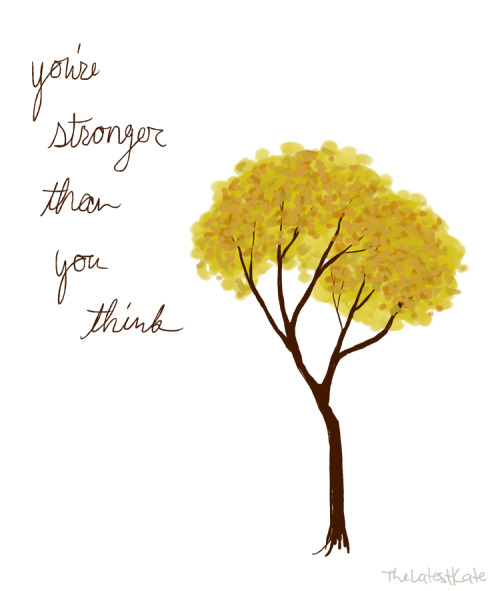 you're
stronger
than
you
think
TheLatestKate